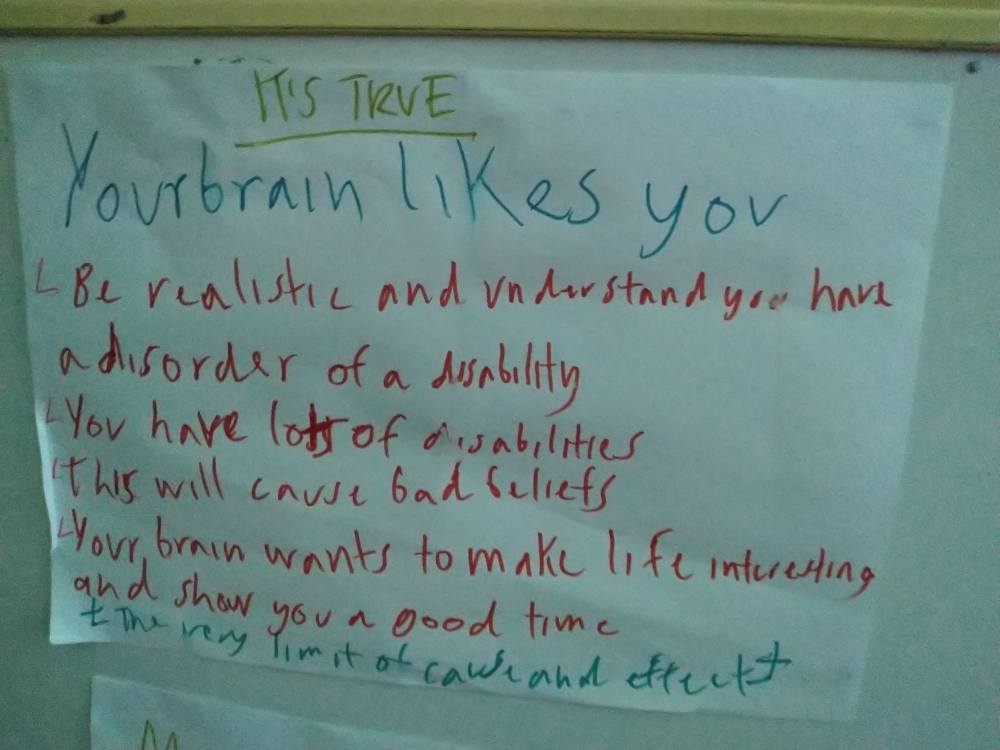 IT'S TRUE
Your brain likes you
Be realistic and understand you have
a disorder of a disability
You have lots of disabilities
This will cause bad beliefs
Your brain wants to make life interesting
and show you a good time
+ The very limit of cause and effect +